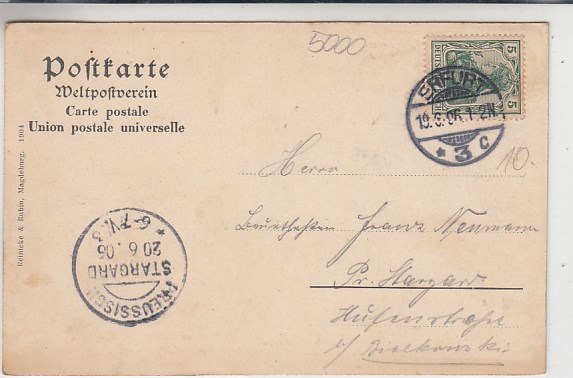 5000
Postkarte
Weltpostverein
Carte postale
Union postale universelle
Reinicke & Rubin, Magdeburg. 1904
5 5
ERFURT
19.6.06.1-2N.
* 3 c
10.
Herrn
Franz Neumann
Pr. Stargard
Hufenstraße
b/ Bialkowski
PREUSSISCH
STARGARD
20 6.06
* 6-7V. 3